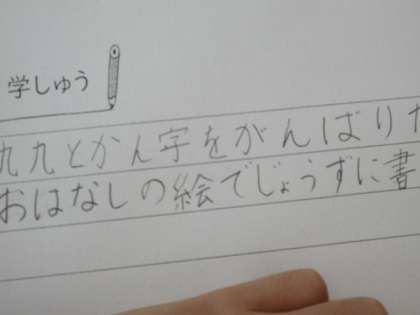 学しゅう
九九とかん字をがんばりた
おはなしの絵でじょうずに書